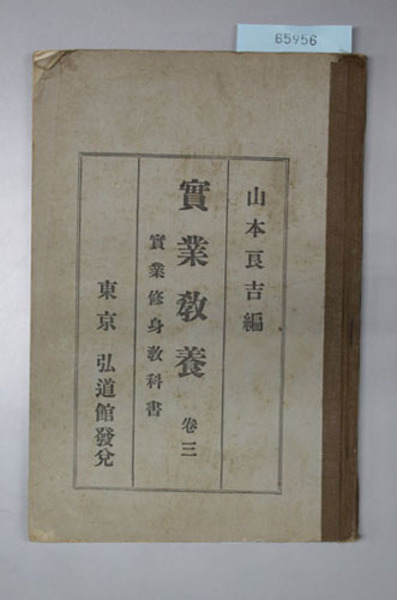 65956
山本良吉編
實業敎養 卷三
實業修身敎科書
東京 弘道館發兌